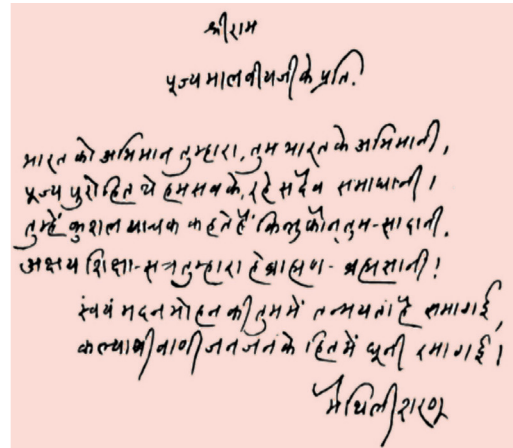 श्रीराम
पूज्य मालवीयजी के प्रति.
भारत को अभिमान तुम्हारा, तुम भारत के अभिमानी,
पूज्य पुरोहित थे हम सब के, रहे सदैव समाधानी।
तुम्हें कुशल याचक कहते हैं किन्तु कौन तुम-सा दानी,
अक्षय शिक्षा-सत्र तुम्हारा हे ब्राह्मण- ब्रह्मज्ञानी!
स्वयं मदनमोहन की तुममें तन्मयता है समागई,
कल्याणी वाणी जन जन के हित में धूनी रमागई।
मैथिलीशरण